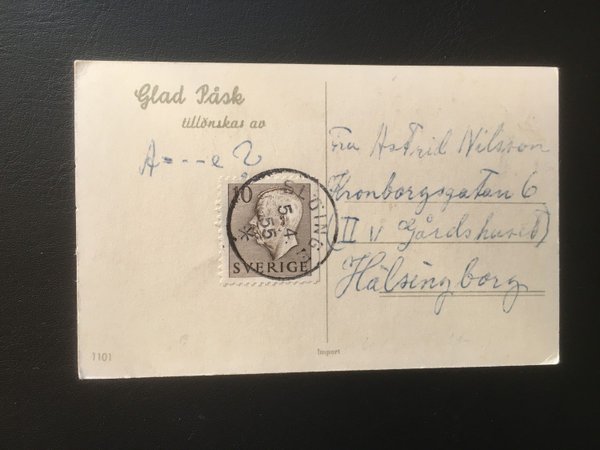 Glad Påsk
tillönskas av
A----e
10
SVERIGE
SLÖINGE
5-4
55
Fru Astrid Nilsson
Kronborgsgatan 6
(II v Gårdshuset)
Hälsingborg
1101
Import